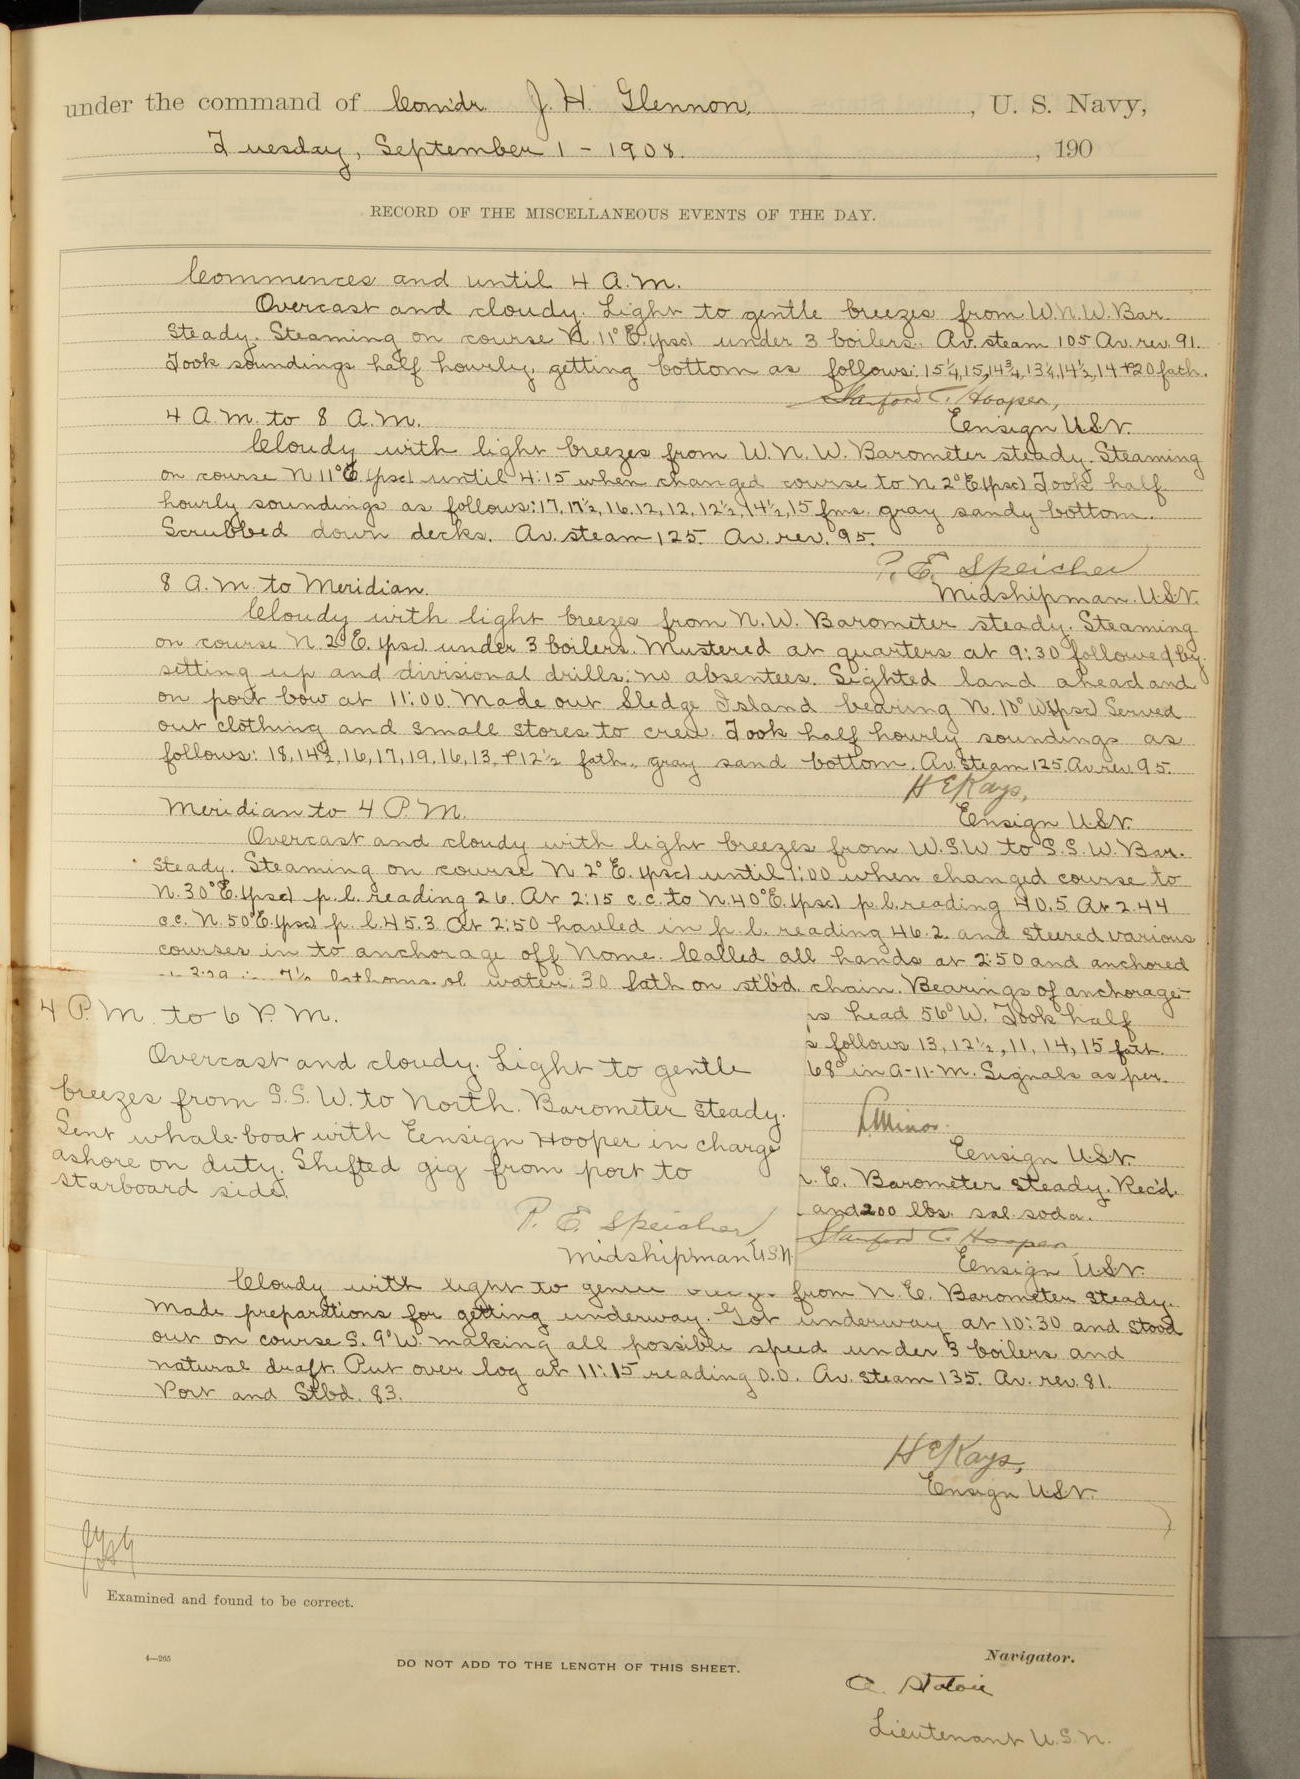 under the command of Com'dr. J. H. Glennon, , U. S. Navy,
Tuesday, September 1 - 1908. , 190
RECORD OF THE MISCELLANEOUS EVENTS OF THE DAY.
Commences and until 4 A.M.
Overcast and cloudy. Light to gentle breezes from W.N.W. Bar.
steady. Steaming on course N.11°E.(psc) under 3 boilers. Av. steam 105 Av. rev. 91.
Took soundings half hourly, getting bottom as follows: 15¼, 15, 14¾, 13¼, 14½, 14 + 20 fath.
Stanford C. Hooper,
4 A.M. to 8 A.M. Ensign U.S.N.
Cloudy with light breezes from W.N.W. Barometer steady. Steaming
on course N 11°E (psc) until 4:15 when changed course to N 2°E (psc) Took half
hourly soundings as follows: 17, 17½, 16, 12, 12, 12½, 14½, 15 fms. gray sandy bottom.
Scrubbed down decks. Av. steam 125. Av. rev. 95.
P. E. Speicher
8 A.M. to Meridian. Midshipman U.S.N.
Cloudy with light breezes from N.W. Barometer steady. Steaming
on course N. 2°E. (psc) under 3 boilers. Mustered at quarters at 9:30 followed by
setting up and divisional drills; no absentees. Sighted land ahead and
on port bow at 11:00. Made out Sledge Island bearing N. 10° W(psc) Served
out clothing and small stores to crew. Took half hourly soundings as
follows: 18, 14½, 16, 17, 19, 16, 13, + 12½ fath., gray sand bottom. Av. steam 125. Av. rev. 95.
H E Kays,
Meridian to 4 P.M. Ensign U.S.N.
Overcast and cloudy with light breezes from W.S.W to S.S.W. Bar.
steady. Steaming on course N 2° E. (psc) until 1:00 when changed course to
N. 30°E. (psc) p. l. reading 26. At 2:15 c.c. to N.40°E. (psc) p. l. reading 40.5 At 2.44
c.c. N. 50°E (psc) p. l. 45.3 At 2:50 hauled in p. l. reading 46.2. and steered various
courses in to anchorage off Nome. Called all hands at 2:50 and anchored
7½ fathoms of water; 30 fath on st'bd. chain. Bearings of anchorage-
head 56° W. Took half
follows 13, 12½, 11, 14, 15 fath.
68° in A-11-M. Signals as per.
Minor.
Ensign U.S.N.
4 P.M. to 6 P.M.
Overcast and cloudy. Light to gentle
breezes from S.S.W. to North. Barometer steady.
Sent whale-boat with Ensign Hooper in charge
ashore on duty. Shifted gig from port to
starboard side.
P. E. Speicher
Midshipman U.S.N.
E. Barometer steady. Rec'd.
and 200 lbs. sal soda.
Stanford C. Hooper
Ensign U.S.N.
Cloudy with light to from N.E. Barometer steady.
Made preparations for getting underway. Got underway at 10:30 and stood
out on course S. 9°W making all possible speed under 3 boilers and
natural draft. Put over log at 11:15 reading 0.0. Av. steam 135. Av. rev. 81.
Port and Stbd. 83.
H E Kays,
Ensign U.S.N.
Examined and found to be correct.
4—265
DO NOT ADD TO THE LENGTH OF THIS SHEET.
Navigator.
Lieutenant U.S.N.